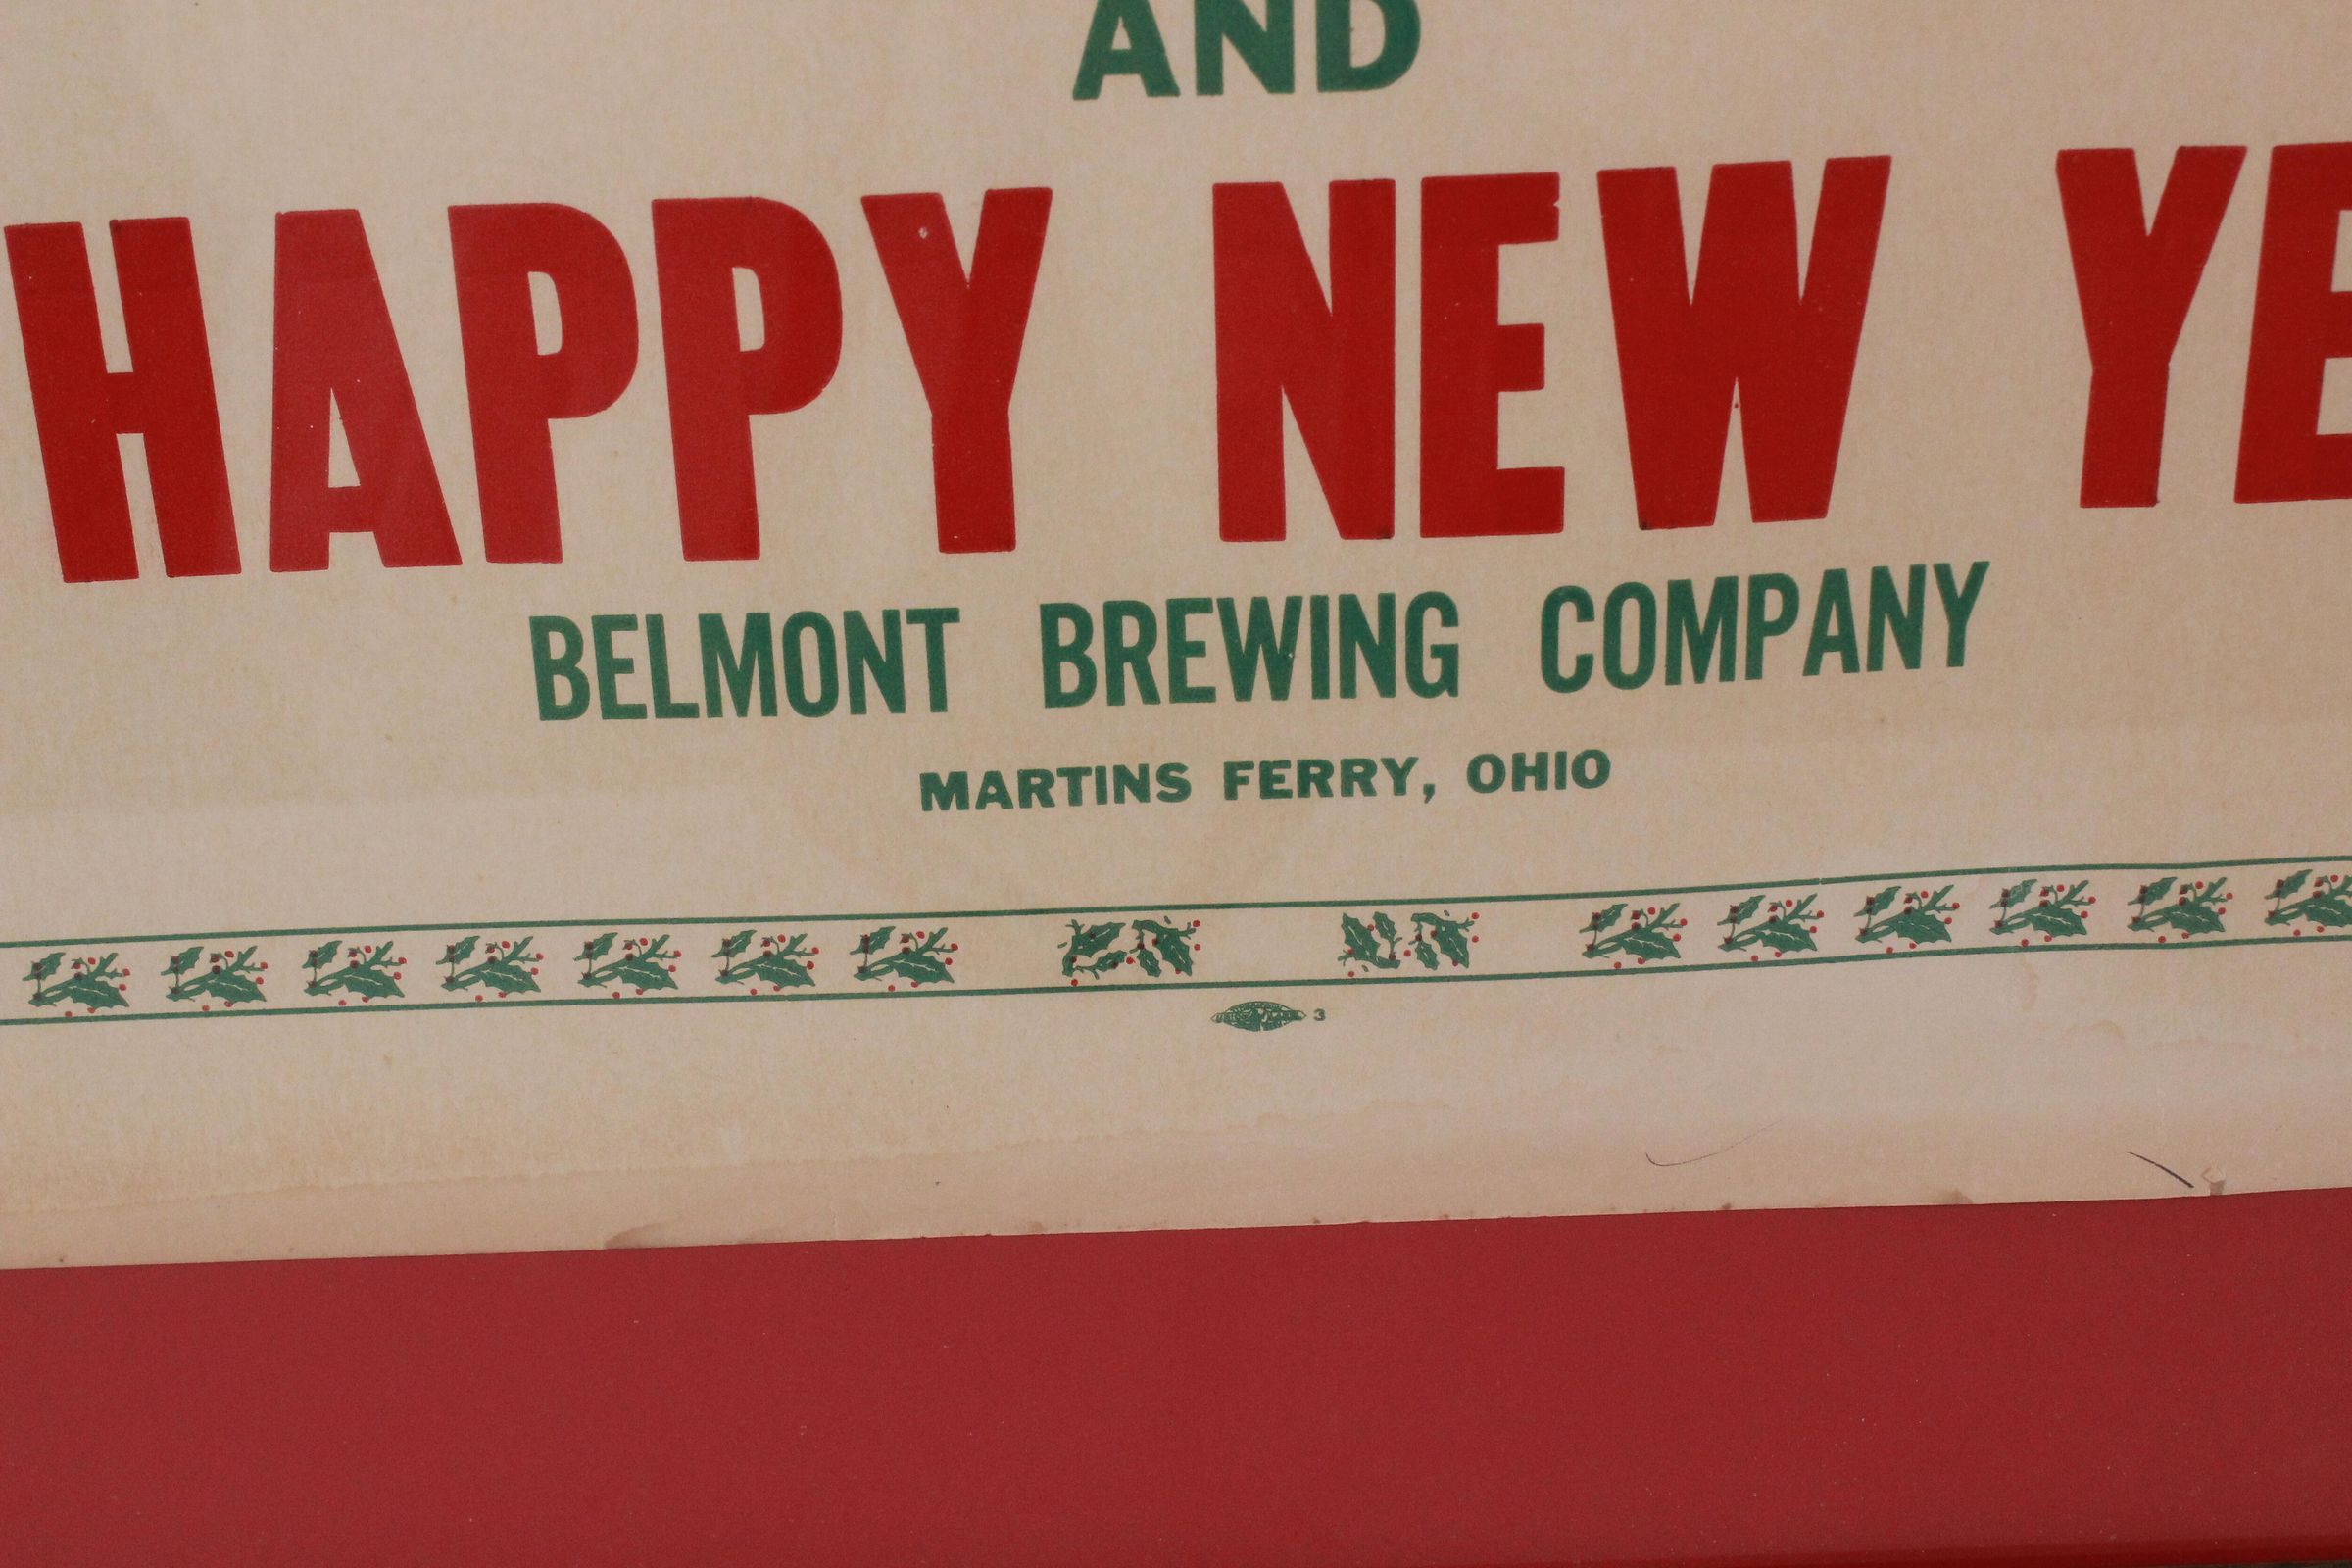 AND
HAPPY NEW YE
BELMONT BREWING COMPANY
MARTINS FERRY, OHIO
3